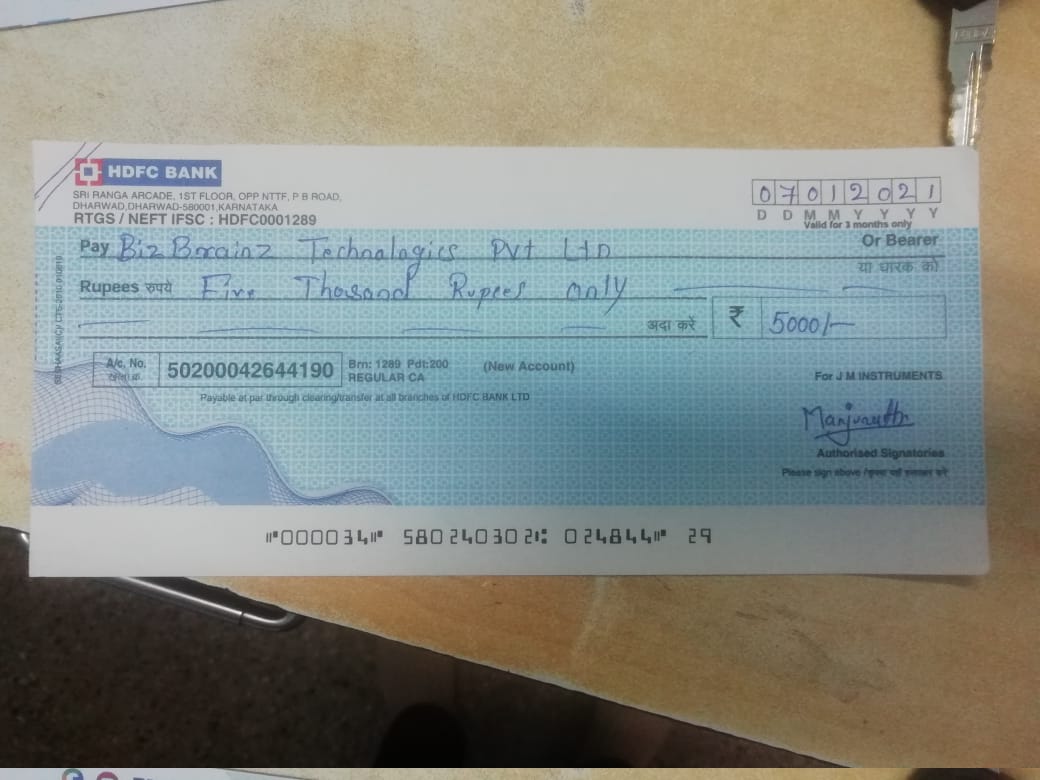 HDFC BANK
SRI RANGA ARCADE, 1ST FLOOR, OPP NTTF, P B ROAD,
DHARWAD,DHARWAD-580001,KARNATAKA
RTGS / NEFT IFSC : HDFC0001289
0 7 0 1 2 0 2 1
D D M M Y Y Y Y
Valid for 3 months only
Pay BizBrainz Technologies Pvt Ltd
Or Bearer
या धारक को
Rupees रुपये Five Thousand Rupees only
अदा करें ₹ 5000/-
A/c. No.
खाता क्र.
50200042644190
Brn: 1289 Pdt:200
REGULAR CA
(New Account)
For J M INSTRUMENTS
Payable at par through clearing/transfer at all branches of HDFC BANK LTD
Manjunath
Authorised Signatories
Please sign above
⑈000034⑈ 580240302⑆ 024844⑈ 29